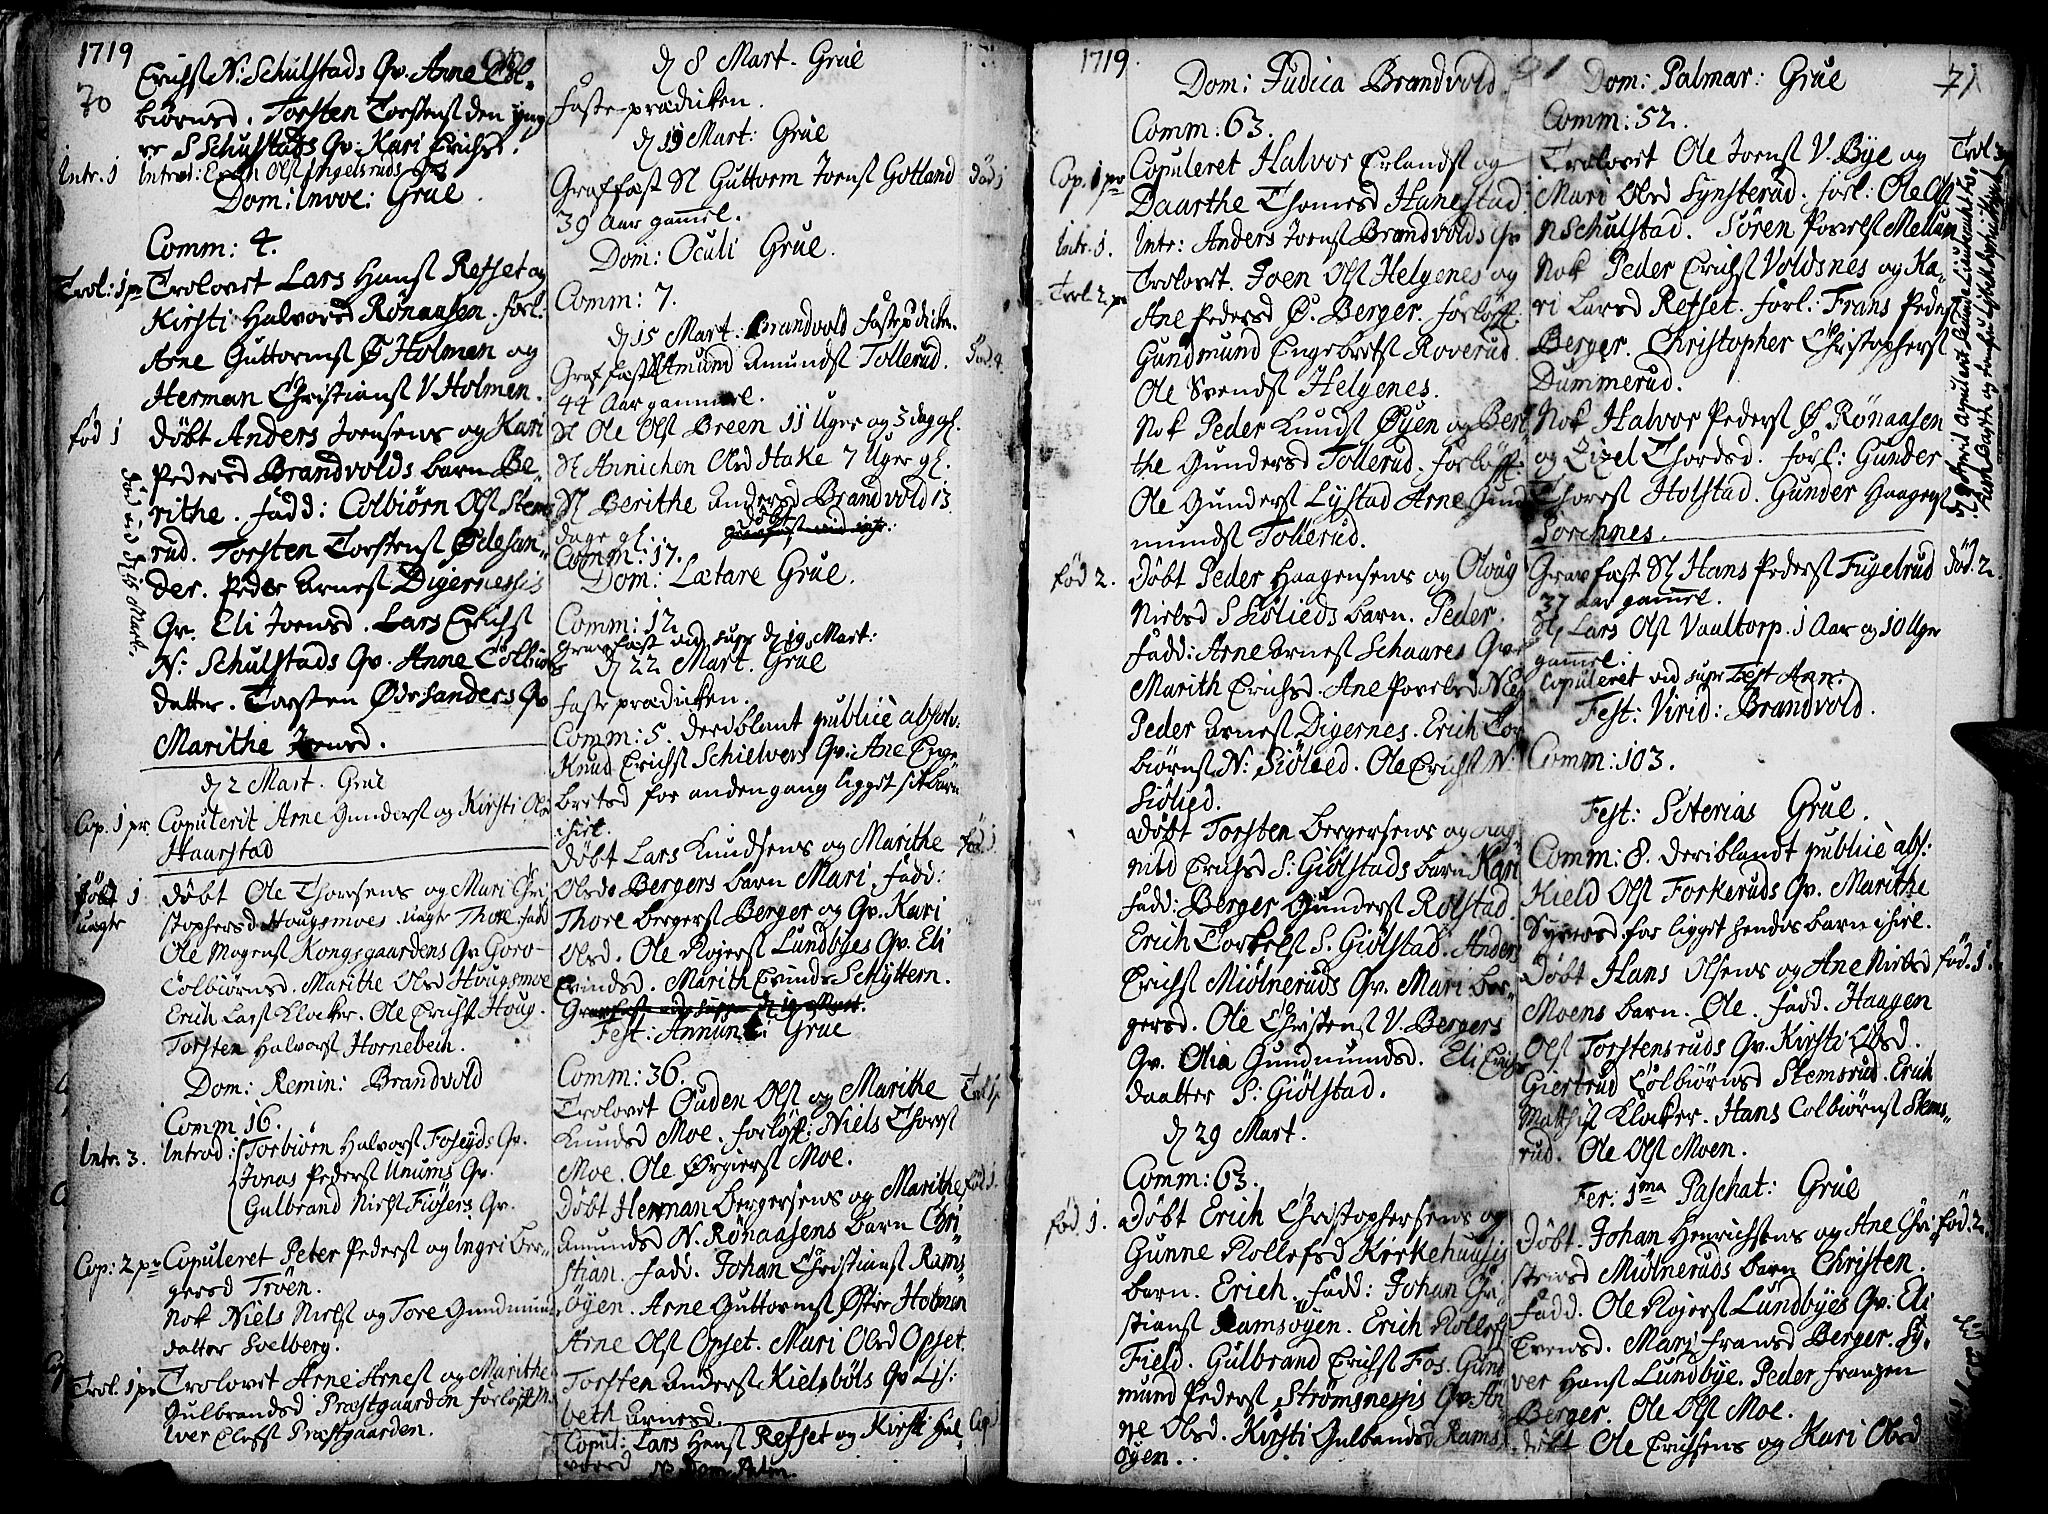 1719
70
Erichs N: Schulstads Qv. Arne Col-
biørnsd. Torsten Torstens den yng
re S Schulstads Qv: Kari Erichsd.
Intr. 1
Introd: Ols Ingelsruds Qv
Dom: Invoc: Grue.
Comm: 4.
Trol: 1 pr
Trolovet Lars Hans Refset og
Kirsti Halvorsd Rönaasen. forl:
Arne Guttorms Ø Holmen og
Herman Christians V. Holmen.
fød 1
Døbt Anders Joensens og Kari
Pedersd Brandvolds barn Be-
rithe. Fadd: Colbiørn Ols Stems
rud. Torsten Torstens Ødesan-
der. Peder Arnes Digernessis
Qv. Eli Joensd. Lars Erichs
N: Schulstads Qv. Anne Colbiørns
datter. Torsten Ødesanders Qv
Marithe Joensd.
død vid d 15 Mart.
d 2 Mart. Grue
Cop. 1 pr.
Copulerit Arne Gunders og Kirsti Olsd
Haarstad
Døbt 1
uægte
Døbt Ole Thoresens og Mari Chri
stophersd Hougsmoes uægte Thore. fadd
Ole Mogens Kongsgaardens Qv Goro
Colbiørnsd. Marithe Olsd Hougsmoe
Erich Lars Klocker. Ole Erichs Houg.
Torsten Halvors Hornebech.
Dom: Remin: Brandvold
Comm 16.
Intr. 3.
Introd: Torbiørn Halvors Foseyds Qv.
Jonas Peders Unums Qv.
Gulbrand Niels Fiosers Qv.
Cop: 2 pr
Copuleret Peter Peders og Ingri Ber-
gersd Trøen.
Nok Niels Niels og Tore Gundmuns
datter Svelberg.
Trol. 1 pr
Trolovet Arne Arnes og Marithe
Gulbrandsd Præstgaarden forløft
Iver Elefs Præstgaarden.
d 8 Mart. Grue
Faste prædicken.
d 19 Mart: Grue
Graffæst Sl Guttorm Joens Gotland
død 1
39 Aar gammel.
Dom: Oculi Grue.
Comm: 7.
d 15 Mart: Brandvold fastepdicken.
Graffæst Sl Amund Amunds Tollerud.
død. 4.
44 Aar gammel.
Sl Ole Ols Breen 11 Uger og 3 dage gl.
Sl Annichen Olsd Hake 7 Uger gl.
Sl Berithe Andersd Brandvold 13
dage gl:
Comm: 17.
Dom: Lætare Grue.
Comm: 12.
Gravfæst vid supr d 19 Mart:
d 22 Mart. Grue
Faste prædicken.
Comm: 5. deriblant publicè absolv.
Knud Erichs Schielvers Qv: Ane Enge
bretsd for anden gang ligget sit barn
ihiel.
Døbt Lars Knudsens og Marithe
fød. 1.
Olsds Bergers barn Mari. fadd:
Thore Bergers Berger og Qv. Kari
Olsd. Ole Rojers Lundbyes Qv. Eli
Evindsd. Marith Evindsd Schyttern.
Gravfæst vid supr d 19 Mart.
Fest: Annunt: Grue
Comm: 36.
Trolovet Ouden Ols og Marithe
Trol 1 pr
Knudsd Moe. forløft: Niels Thores
Moe. Ole Ørgiers Moe.
Døbt Herman Bergersens og Marithe
fød 1.
Amundsd N. Rönaasens barn Chri-
stian. fadd. Johan Christians Rams-
øyen. Arne Guttorms Østre Holmen
Arne Ols Opset. Mari Olsd Opset.
Torsten Anders Kielsböls Qv Lis-
beth Arnesd.
Copul: Lars Hans Refset og Kirsti Hal
Cop 1
vorsd
1719.
Dom: Judica Brandvold.
Comm: 63.
Cop. 1 pr
Copuleret Halvor Erlands og
Daarthe Thomesd Hanestad.
Intr. 1.
Intr: Anders Joens Brandvolds Qv
Trol. 2 pr
Trolovet. Joen Ols Helgenes og
Ane Pedersd Ø. Berger. forløft.
Gundmund Engebrets Roverud.
Ole Svends Helgenes.
Nok Peder Knuds Øyen og Beri-
the Gundersd Tollerud. forløft.
Ole Gunders Lystad Arne Gund
munds Tollerud.
fød 2.
Døbt Peder Haagensens og Oloug
Nielsd S Siølieds barn. Peder.
Fadd: Arne Arnes Schaares Qv
Marith Erichsd. Ane Povelsd
Peder Arnes Digernes. Erich Tor
biørns N: Siølied. Ole Erichs N:
Siølied.
Døbt Torsten Bergersens og Rag
nild Erichsd S: Giölstads barn Kari
fadd: Berger Gunders Rolstad.
Erich Torkels S. Giölstad. Anders
Erichs Miølneruds Qv. Mari Ber-
gersd. Ole Christens V. Bergers
Qv. Olia Gundmundsd. Eli Erichs
daatter S: Giölstad.
d 29 Mart.
Comm: 63.
fød 1.
Døbt Erich Christophersens og
Gunne Rollefsd Kirkehuusis
barn. Erich. Fadd: Johan Chri
stians Ramsøyen. Erich Rollefs
Field. Gulbrand Erichs Fos. Gund
mund Peders Strømsnessis Qv. An
ne Olsd. Kirsti Gulbrandsd Rams
øyen.
Dom: Palmar: Grue
71
Comm: 52.
Trolovet Ole Joens V. Bye og
Trol. 3
Mari Olsd Lynsterud. forl: Ole Ols
N Schulstad. Sören Povels Mellum
Nok Peder Erichs Voldsnes og Ka-
ri Larsd Refset. forl: Frans Peders
Berger. Christopher Christophers
Dummerud.
Nok Halvor Peders Ø Rönaasen
og Lizel Thordsd. forl: Gunder
Thores Holstad. Gunder Haagens
Sorchnes.
Gravfæst Sl Hans Peders Fugelrud
død. 2.
37 aar gammel.
Sl Lars Ols Vaaltorp. 1 Aar og 10 Uger
gammel:
Copuleret vid supr Fest Ann:
Fest: Virid: Brandvold.
Comm: 103.
Fest: Soterias Grue.
Comm: 8. deriblandt publicè abs:
Kield Ols Forkeruds Qv. Marithe
Syversd. for ligget hendes barn ihiel.
Døbt Hans Olsens og Ane Nielsd
fød. 1.
Moens barn. Ole. Fadd. Haagen
Ols Torstensruds Qv. Kirsti Olsd.
Giertrud Colbiørnsd Stemsrud. Erich
Mathis Klocker. Hans Colbiørns Stems-
rud. Ole Ols Moen.
Fer: 1ma Paschat: Grue
Døbt Johan Henrichsens og Ane Chri
fød. 2.
stensd Miölneruds barn Christen.
Fadd. Ole Rojers Lundbyes Qv: Eli
Evensd. Mari Fransd Berger. Sy-
ver Hans Lundbye. Peder Franzen
Berger. Ole Ols Moe.
Døbt Ole Erichsens og Kari Olsd